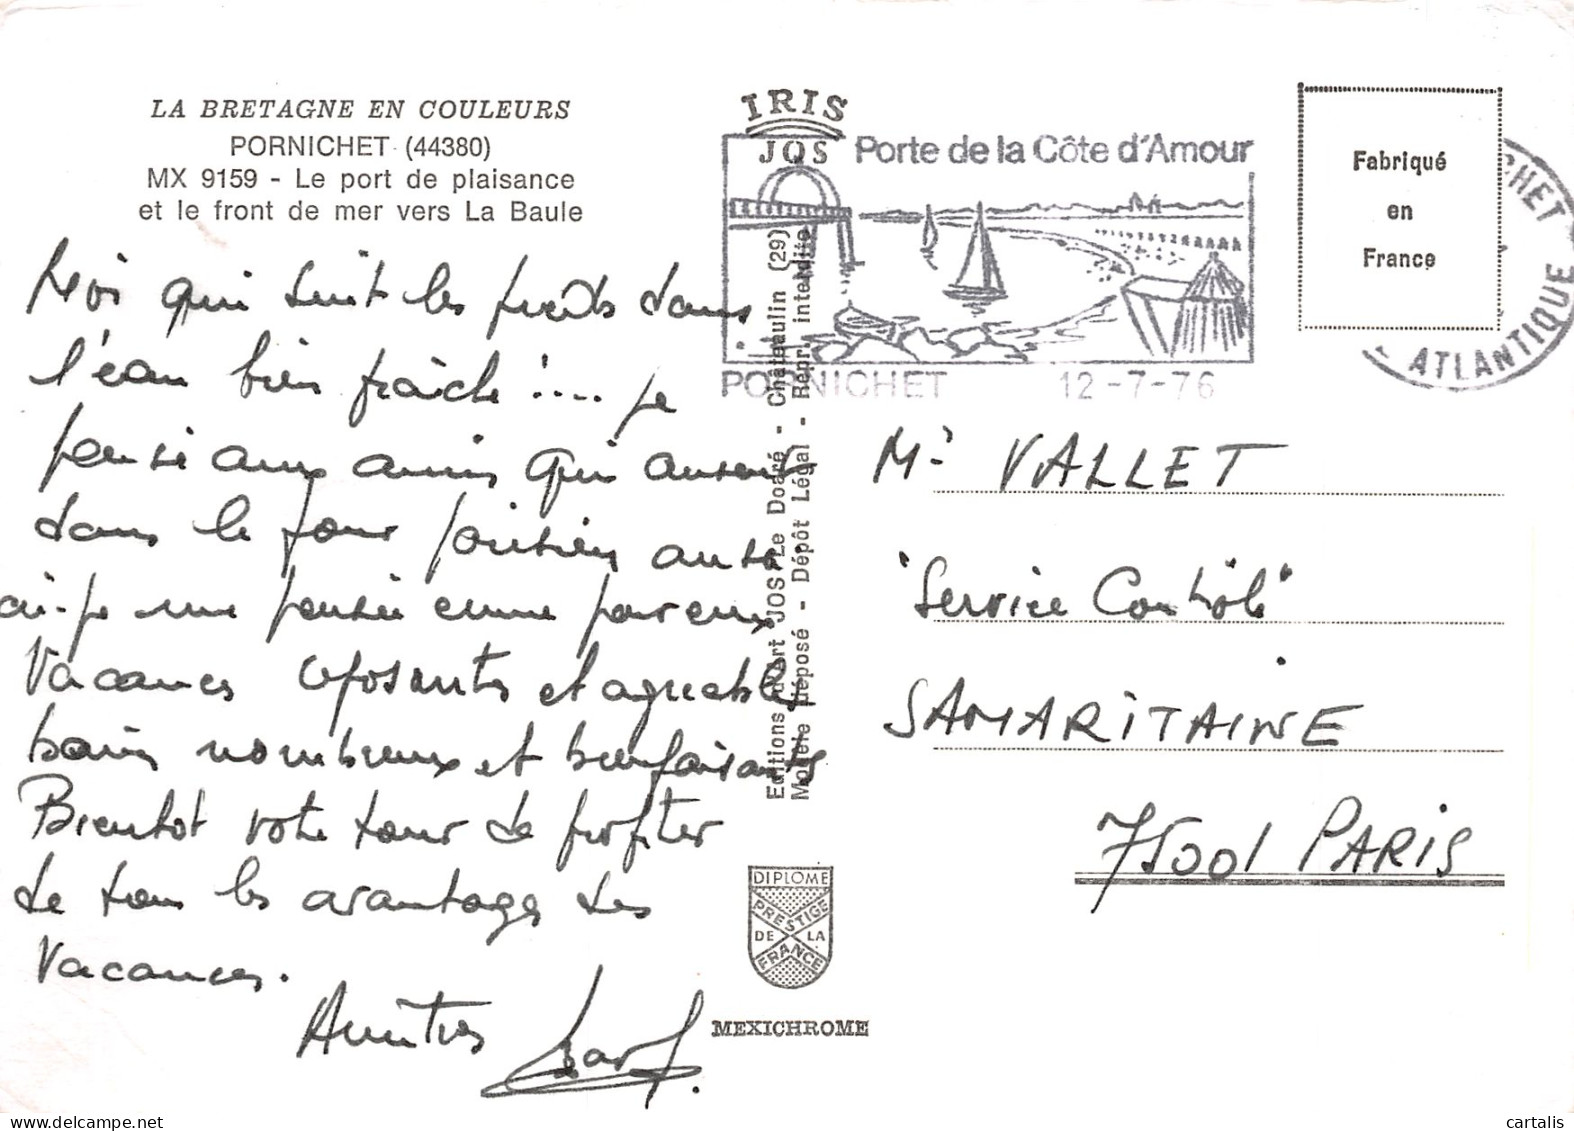 LA BRETAGNE EN COULEURS
PORNICHET (44380)
MX 9159 - Le port de plaisance
et le front de mer vers La Baule
Moi qui suit les pieds dans
l'eau bien fraîche !.... je
pense aux amis qui
dans le four parisien aussi
ai-je une pensée émue pour eux
Vacances reposantes et agréables
bains nombreux et bienfaisants
Bientot votre tour de profiter
de tous les avantages des
Vacances.
Amitiés
IRIS
JOS
Porte de la Côte d'Amour
PORNICHET 12-7-76
CHET
ATLANTIQUE
Fabriqué
en
France
Editions d'Art JOS Le Doaré - Châteaulin (29)
Modèle déposé - Dépôt Légal - Repr. interdite
Mr VALLET
"Service Contrôle"
SAMARITAINE
75001 PARIS
DIPLOME
PRESTIGE
DE LA
FRANCE
MEXICHROME
cartalis
delcampe.net